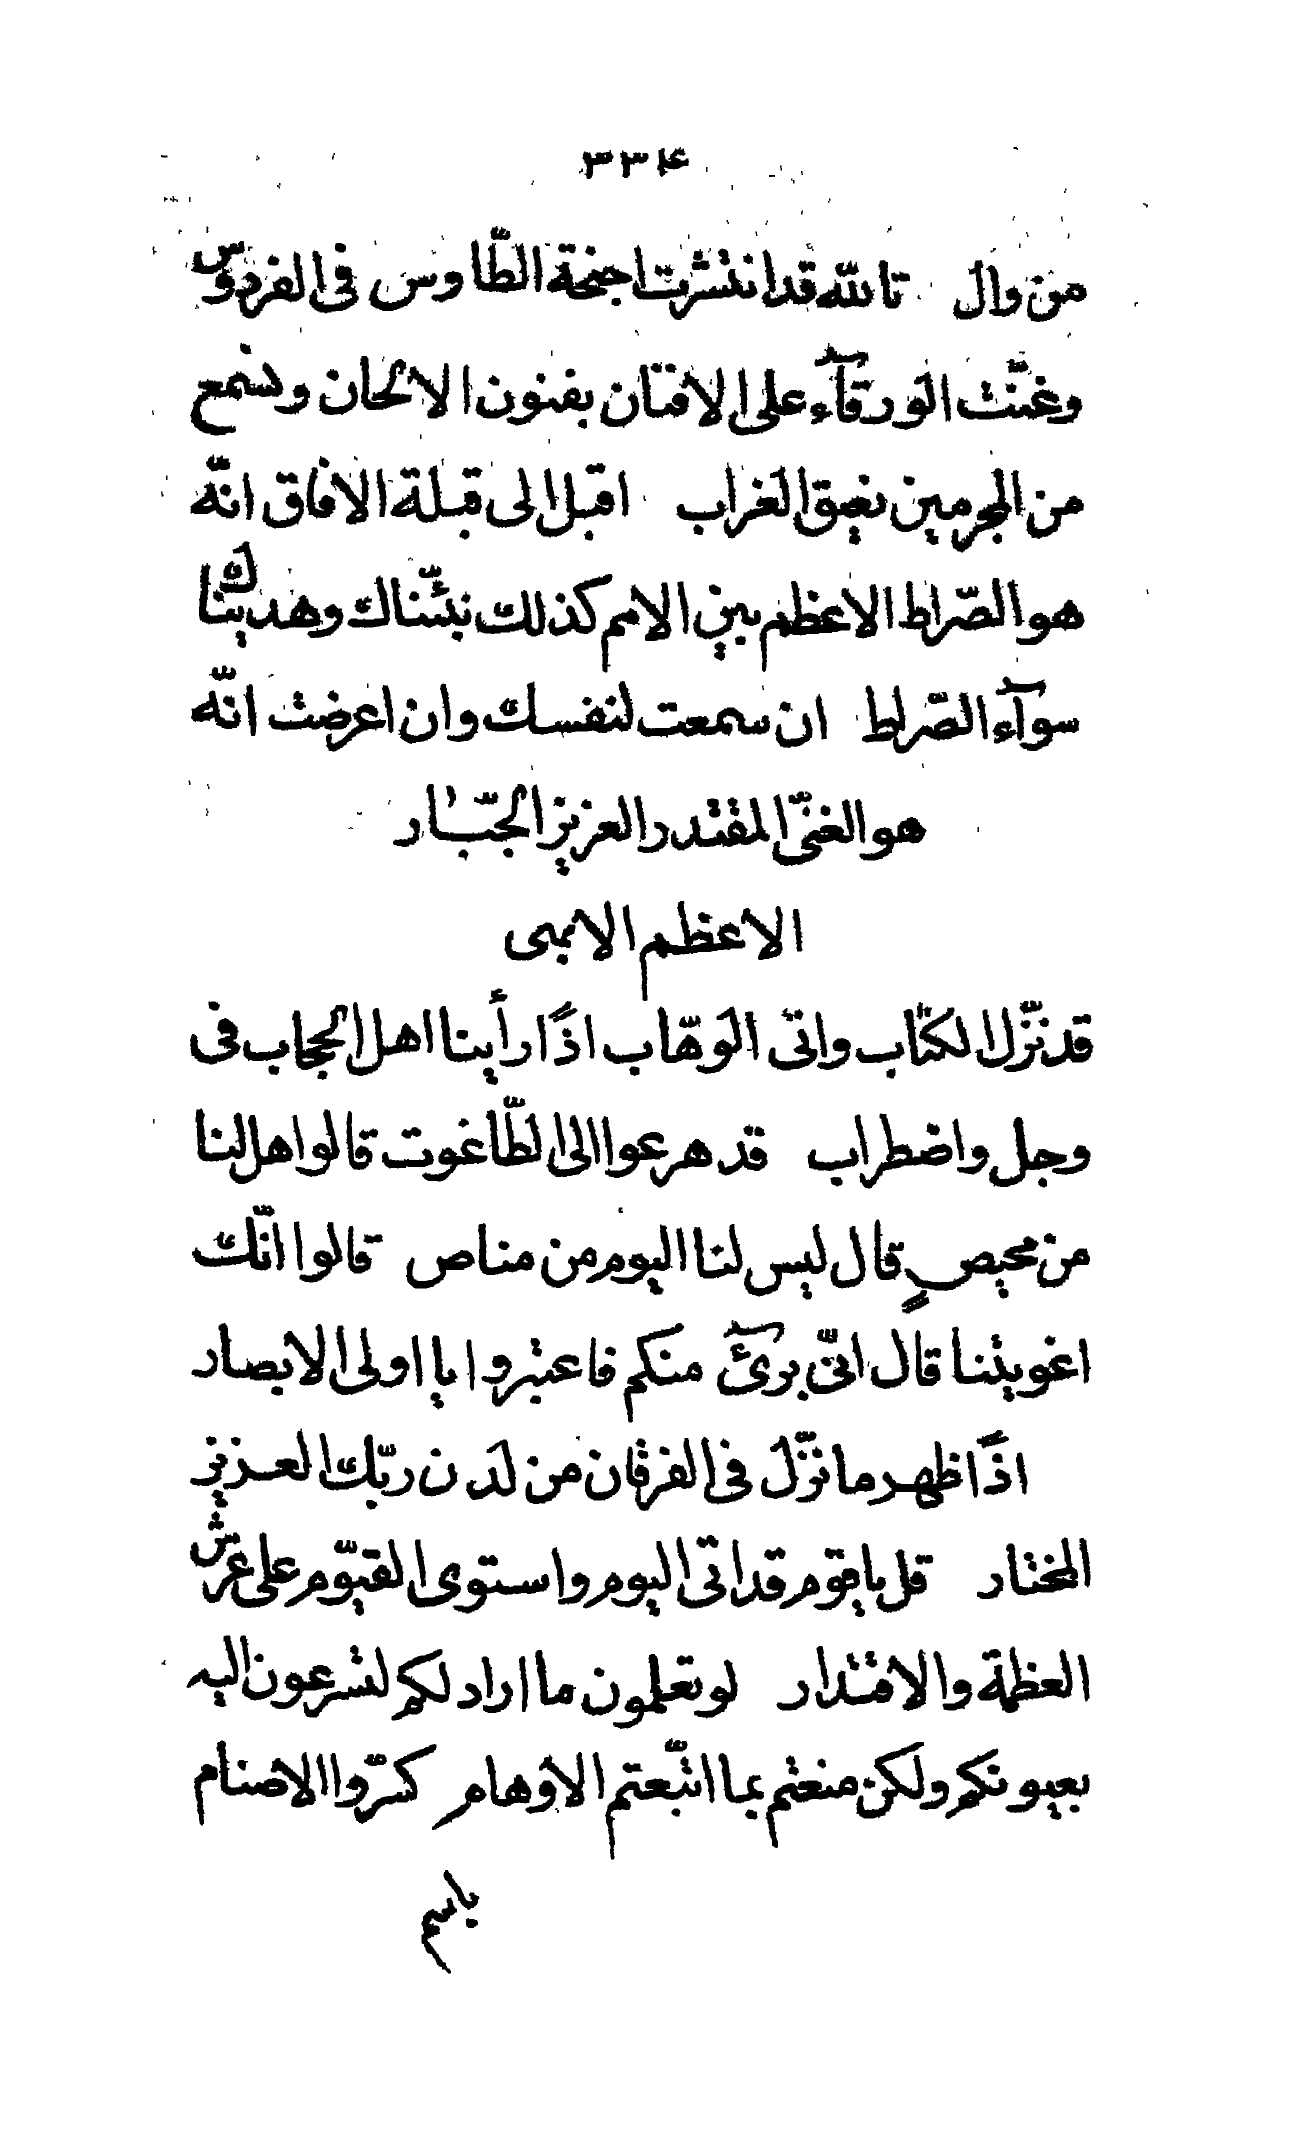 ٣٣۴
من وال تالله قد انتشرت اجنحة الطّاوس فی الفردوس
وغنّت الورقآء علی الافنان بفنون الالحان و نسمع
من المجرمین نعیق الغراب اقبل الی قبلة الافاق انّه
هو الصّراط الاعظم بین الامم کذلک نبّئناک و هدیناک
سوآء الصّراط ان سمعت لنفسک و ان اعرضت انّه
هو الغنیّ المقتدر العزیز الجبّار
الاعظم الابهی
قد نزّل الکتاب و اتی الوهّاب اذاً رأینا اهل الحجاب فی
وجل و اضطراب قد هرعوا الی الطّاغوت قالوا هل لنا
من محیصٍ قال لیس لنا الیوم من مناص قالوا انّک
اغویتنا قال انّی بریٓئ منکم فاعتبروا یا اولی الابصار
اذاً ظهر ما نزّل فی الفرقان من لدن ربّک العزیز
المختار قل یا قوم قد اتی الیوم و استوی القیّوم علی عرش
العظمة و الاقتدار لو تعلمون ما اراد لکم لتسرعون الیه
بعیونکم ولکن منعتم بما اتّبعتم الاوهام کسّروا الاصنام
باسم